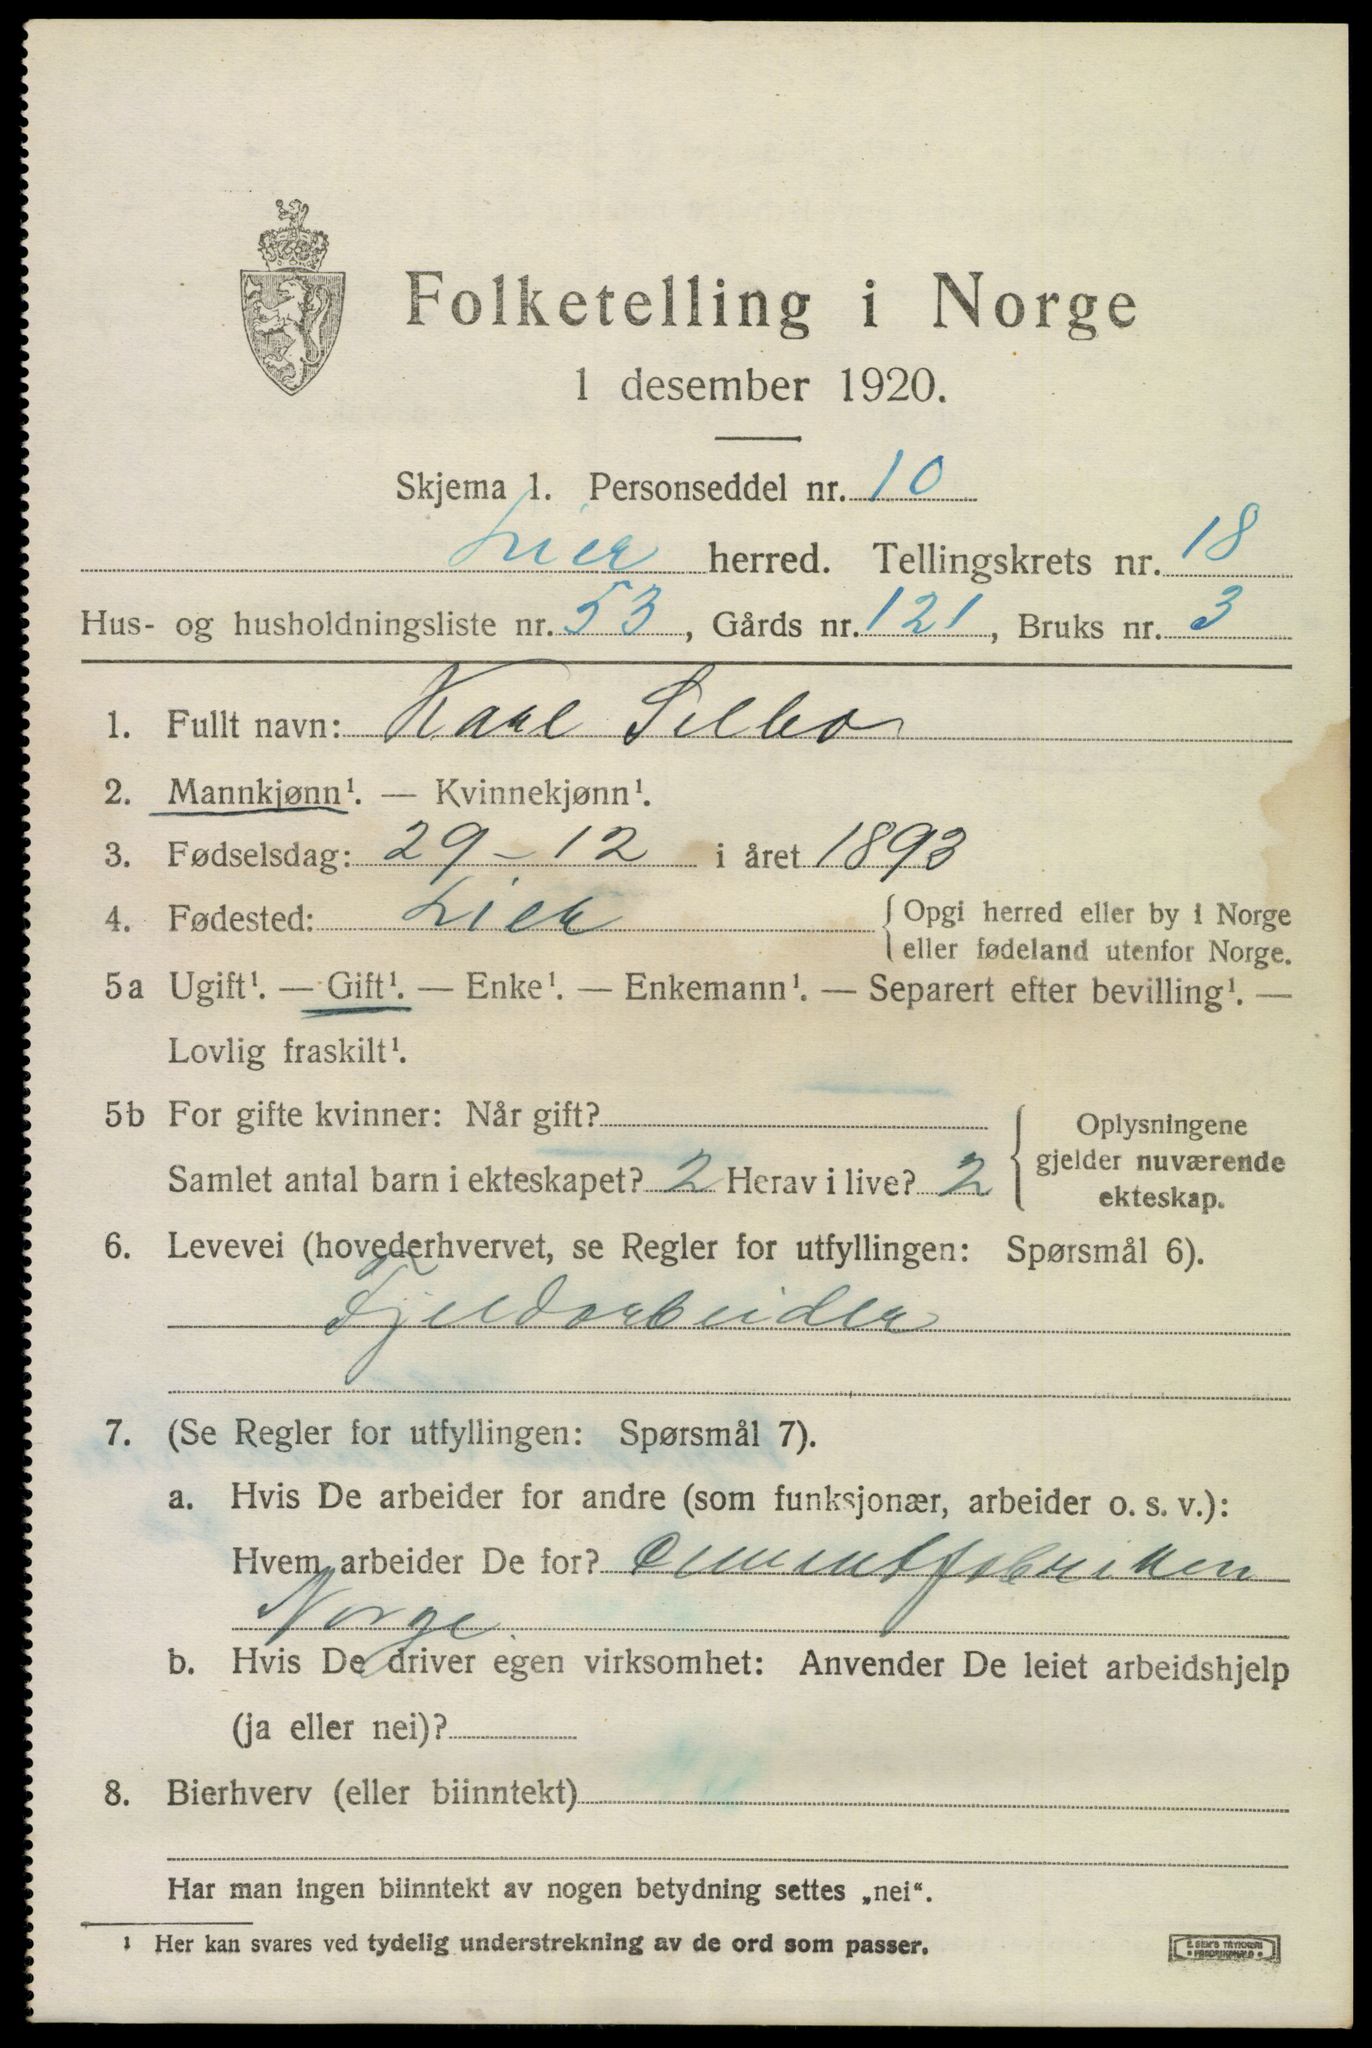 Folketelling i Norge
1 desember 1920.
Skjema 1. Personseddel nr. 10
Lier herred. Tellingskrets nr. 18
Hus- og husholdningsliste nr. 53, Gårds nr. 121, Bruks nr. 3
1. Fullt navn: Karl Selbo
2. Mannkjønn¹. — Kvinnekjønn¹.
3. Fødselsdag: 29-12 i året 1893
4. Fødested: Lier { Opgi herred eller by i Norge
eller fødeland utenfor Norge.
5a Ugift¹. — Gift¹. — Enke¹. — Enkemann¹. — Separert efter bevilling¹. —
Lovlig fraskilt¹.
5b For gifte kvinner: Når gift?
Samlet antal barn i ekteskapet? 2 Herav i live? 2
{ Oplysningene
gjelder nuværende
ekteskap.
6. Levevei (hovederhvervet, se Regler for utfyllingen: Spørsmål 6).
Fjeldarbeider
7. (Se Regler for utfyllingen: Spørsmål 7).
a. Hvis De arbeider for andre (som funksjonær, arbeider o. s. v.):
Hvem arbeider De for? Cementfabriken
Norge.
b. Hvis De driver egen virksomhet: Anvender De leiet arbeidshjelp
(ja eller nei)?
8. Bierhverv (eller biinntekt)
Har man ingen biinntekt av nogen betydning settes „nei“.
¹ Her kan svares ved tydelig understrekning av de ord som passer.